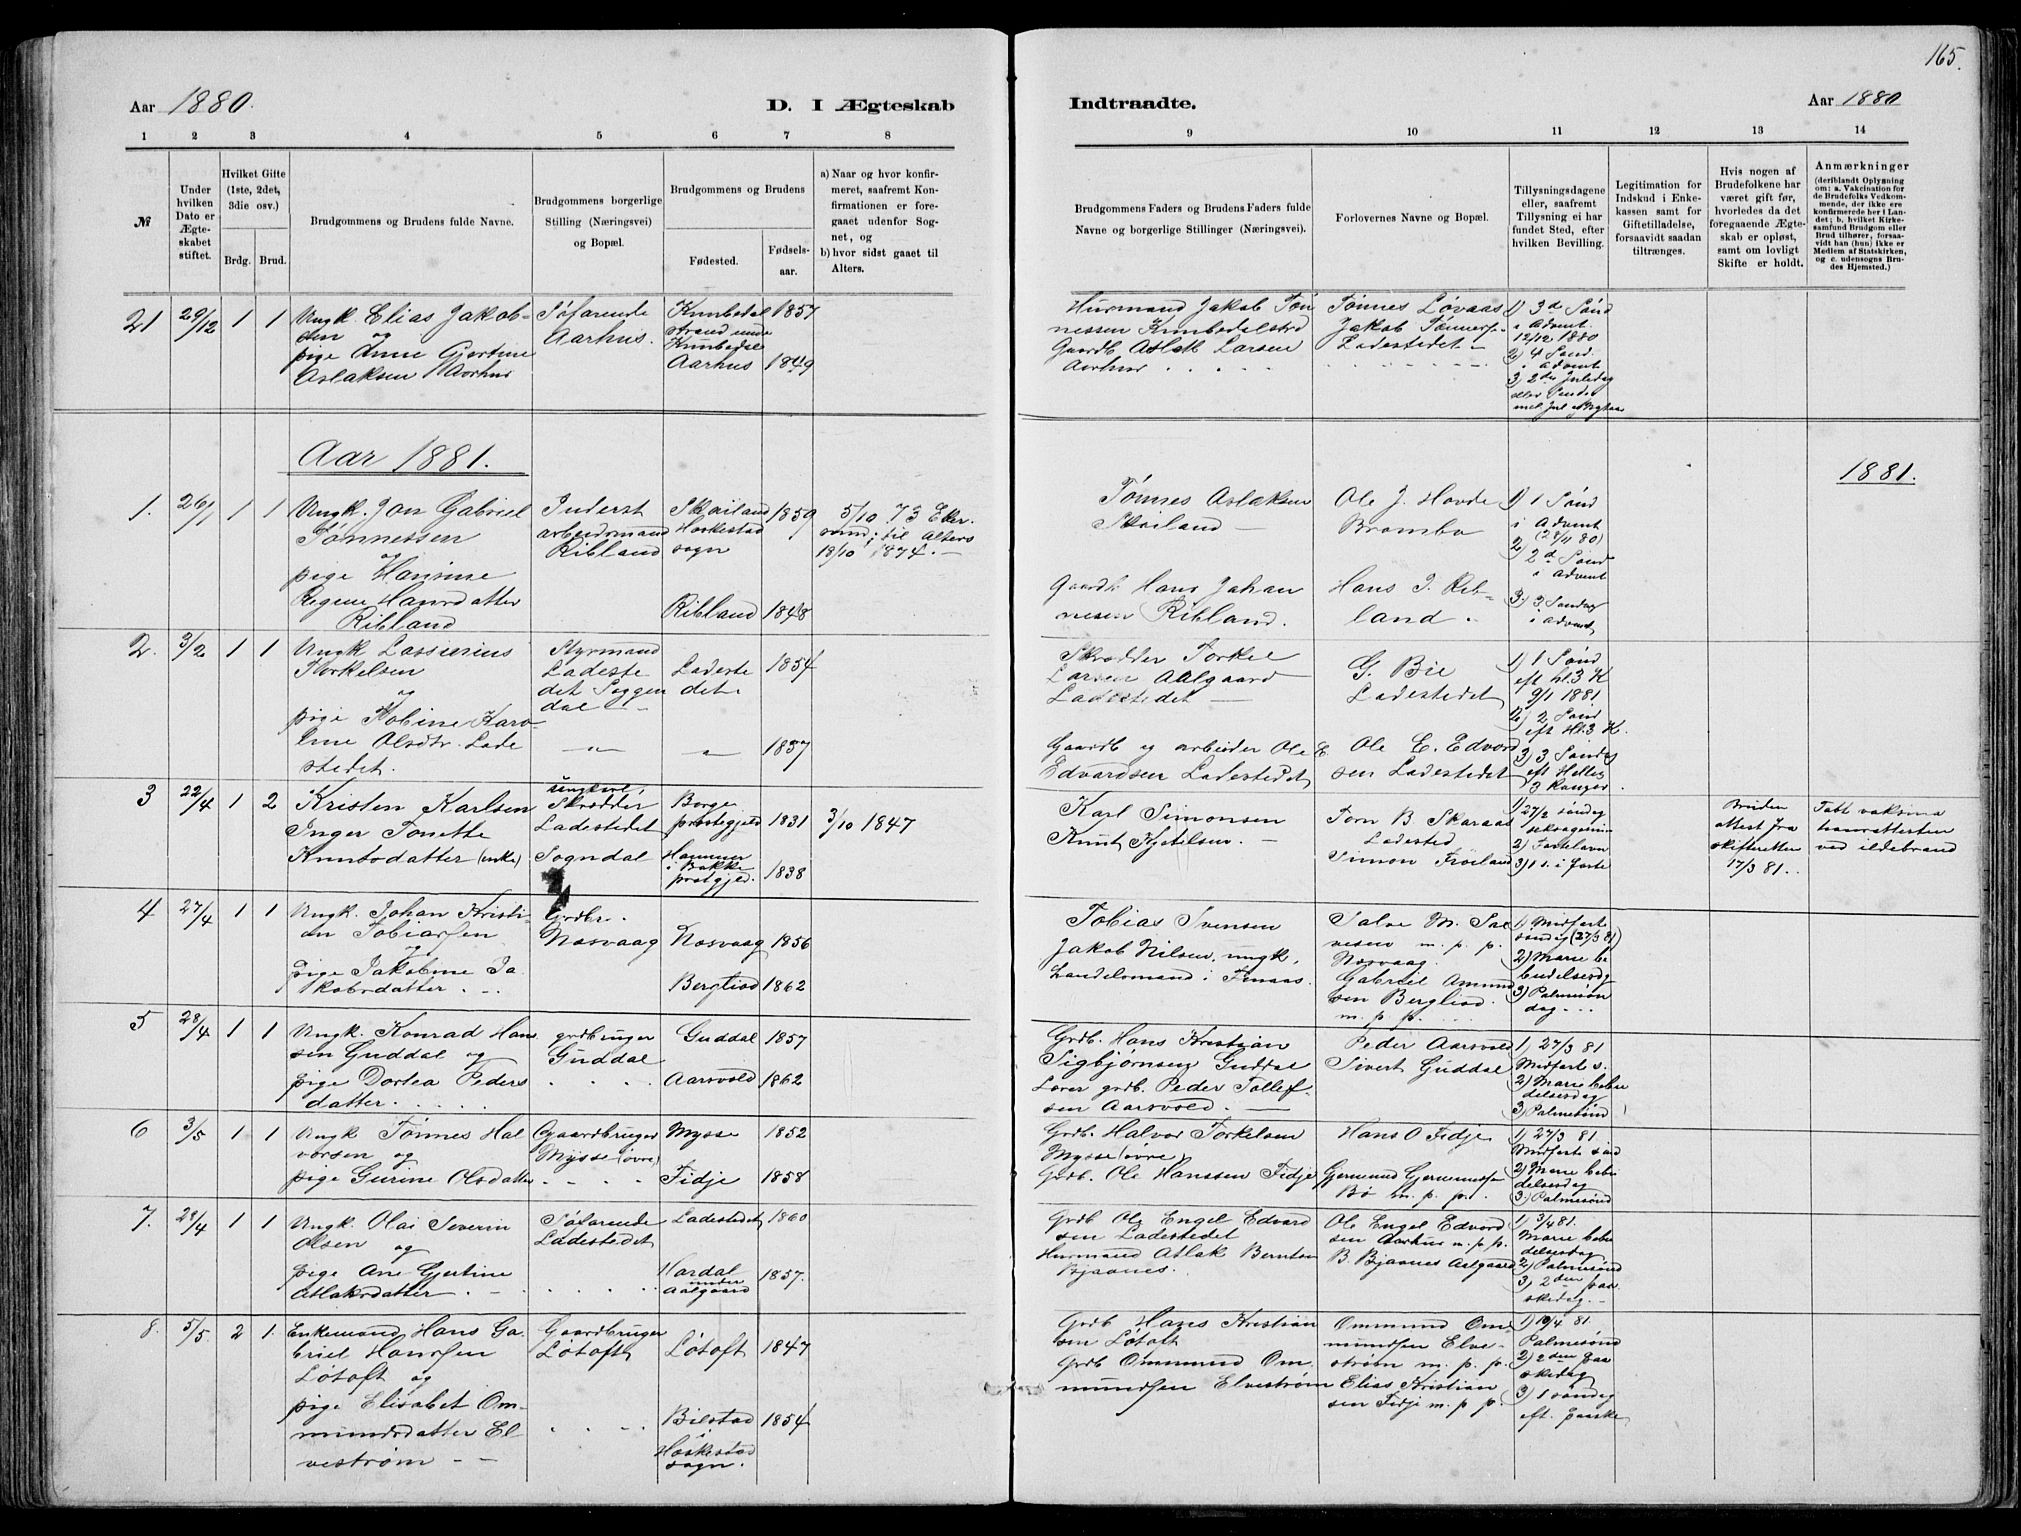 165.
Aar 1880.
D. I Ægteskab
Indtraadte.
Aar 1880
1 2 3 4 5 6 7 8
9 10 11 12 13 14
№
Under hvilken Dato er Ægteskabet stiftet.
Hvilket Gifte (1ste, 2det, 3die osv.)
Brdg. Brud.
Brudgommens og Brudens fulde Navne.
Brudgommens borgerlige Stilling (Næringsvei) og Bopæl.
Brudgommens og Brudens
Fødested.
Fødselsaar.
a) Naar og hvor konfirmeret, saafremt Konfirmationen er foregaaet udenfor Sognet, og
b) hvor sidst gaaet til Alters.
Brudgommens Faders og Brudens Faders fulde Navne og borgerlige Stillinger (Næringsvei).
Forlovernes Navne og Bopæl.
Tillysningsdagene eller, saafremt Tillysning ei har fundet Sted, efter hvilken Bevilling.
Legitimation for Indskud i Enkekassen samt for Giftetilladelse, forsaavidt saadan tiltrænges.
Hvis nogen af Brudefolkene har været gift før, hvorledes da det foregaaende Ægteskab er opløst, samt om lovligt Skifte er holdt.
Anmærkninger
(deriblandt Oplysning om: a. Vakcination for de Brudefolks Vedkommende, der ikke ere konfirmerede her i Landet; b, hvilket Kirkesamfund Brudgom eller Brud tilhører, forsaavidt han (hun) ikke er Medlem af Statskirken, og c. udensogns Brudes Hjemsted.)
21 29/12 1 1
Ungk. Elias Jakobsen og
pige Anne Gjertine
Aslaksen Aarhus
Søfarende
Aarhus.
Knubedal
strand unde
Knubedal
1857
Aarhus 1849
Husmand Jakob Tønnessen Knubedalstrd
Gaardb Aslak Larsen
Aarhus
Tønnes Løvaas
Jakob Tønness.
Ladestedet
1) 3de Sønd
i Advent
12/12 1880
2) 4 Sønd.
i Advent
3) 2den Juledag
Aar 1881.
1881.
1. 26/1 1 1
Ungk. Jon Gabriel
Tønnessen
og
pige Hansine
Regine Hansdatter
Ribland
Inderst
arbeidsmand
Ribland
Skoiland
Heskestad
sogn
1859
Ribland 1848
5/10 73 Ekersund; til Alters
19/10 1874.
Tønnes Aslaksen
Skoiland
Gaardb. Hans Johannesen Ribland.
Ole J. Hovde
Brambo
Hans J. Ribland.
1) 1 Sønd
i Advent
(28/11 80)
2) 2d Sønd
i Advent
3) 3 Søndag
i advent
2. 3/2 1 1
Ungk Lassierius
Torkelsen
og
pige Tobine Karoline Olsdtr. Ladestedet.
Styrmand
Ladestedet Soggendal
Ladestedet.
1854
1857
Skrædder Torkel
Larsen Aalgaard
Ladestedet
Gaardb og arbeider Ole E
Edvardsen Ladestedet
G. Bie
Ladestedet
Ole E. Edvardsen Ladestedet
1) 1 Sønd
eft hl. 3 K
9/1 1881
2) 2 Sønd
eft Hl. 3 K.
3) 3 Søndag
eft Hellig
3 Konger.
3 22/4 1 2
Kristen Karlsen
Inger Tonette
Knutsdatter (enke)
ungkarl,
Skrædder
Ladestedet
Sogndal
Borge
præstegjeld 1831
Hommer
i Bakke
prstgjeld. 1838
3/10 1847
Karl Simonsen
Knut Kjetelsen.
Torn B Skaraas
Ladested
Simon Frøiland
1) 27/2 søndag
seksagesimi
2) Fastelavn
3) 1 s. i faste
Bruden
attest fra
skifteretten
17/3 81.
Tabt vaksina
tionsattesten
ved ildebrand
4 27/4 1 1
Ungk. Johan Kristian Tobiassen
og
pige Jakobine Jakobsdatter.
Grdbr.
Nesvaag
Nesvaag 1856
Bergliod 1862
Tobias Svensen
Jakob Nilsen, ungk.
Landelsmand i Finaas.
Salve M. Salvesen m. p. p.
Nesvaag.
Gabriel Amundsen Bergliod.
m. p. p.
1) Midfaste
søndag (27/3 81)
2) Marie bebudelsesdg
3) Palmesøndag
5 28/4 1 1
Ungk. Konrad Hansen Guddal og
pige Dortea Pedersdatter.
grdbruger
Guddal
Guddal 1857
Aarsvold 1862
Grdb. Hans Kristian
Sigbjørnsen Guddal
Lærer grdb. Peder Tollefsen Aarsvold.
Peder Aarsvold
Sivert Guddal
1) 27/3 81
Midfast s.
2) Marie bebudelsesdag
3) Palmesønd
6 3/5 1 1
Ungk Tønnes Halvorsen og
pige Gurine Olsdatter
Gaardbruger
Mysse (øvre)
Mysse 1852
Fidje 1858
Grdb. Halvor Torkelsen
Mysse (øvre)
Grdb. Ole Hanssen Fidje
Hans O Fidje
Gjermund Gjermundsen
Bø m. p. p.
1) 27/3 81.
Midfaste sønd
2) Marie bebudelsesdag
3) Palmesønd
7. 28/4 1 1
Ungk. Olai Severin
Olsen og
pige Ane Gjertine
Atlaksdatter
Søfarende
Ladestedet
Ladestedet 1860
Hardal
under
Aalgaard
1857.
Grdb Ole Engel Edvardsen Ladestedet
Husmand Atlak Berntsen
Bjaanes.
Ole Engel Edvardsen Aarhus m. p. p.
B. Bjaanes Aalgaard
1) 3/4 81.
Marie bebudelsesdag
2) Palmesønd
3) 2den paaskedag.
8. 5/5 2 1.
Enkemand Hans Gabriel Hansen
Løtoft og
pige Elisabet Ommundsdatter Elvestrøm
Gaardbruger
Løtoft
Løtoft 1847
Bilstad
i
Heskestad
sogn.
1854
Grdb Hans Kristiansen Løtoft
Grdb Ommund Ommundsen Elvestrøm
Ommund Ommundsen Elvestrøm m. p. p.
Elias Kristiansen Fidje m. p. p.
1) 10/4 81.
Palmesønd
2) 2den paaskedag
3) 1 søndag
eft. paaske